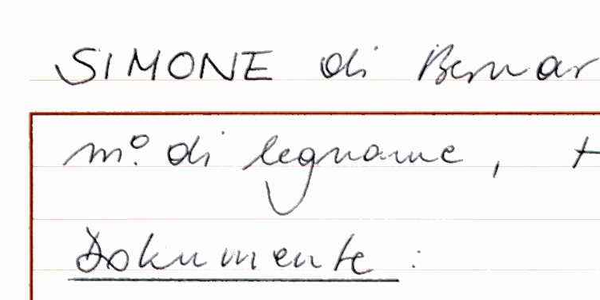 SIMONE di Bernar
mº. di legname, t
Dokumente: